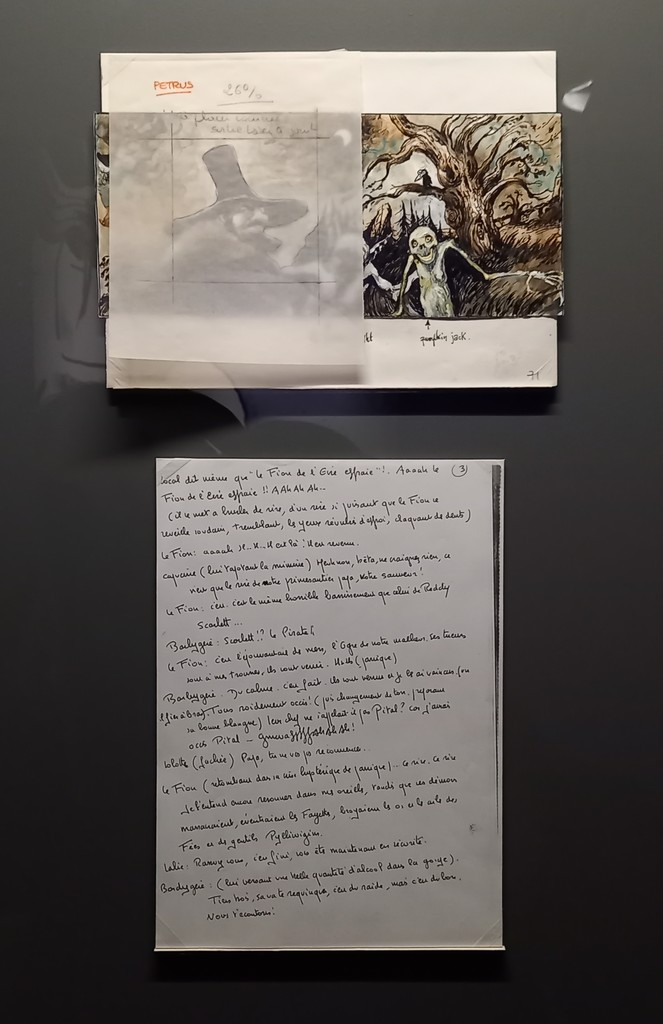 PETRUS
260%
pumpkin jack.
71
local dit même que "le Fion de l'Erié effraie"! Aaaah le (3)
Fion de l'Erié effraie !! AAhAhAh...
(il se met à hurler de rire, d'un rire si puissant que le Fion se
réveille soudain, tremblant, les yeux révulsés d'effroi, claquant de dents)
le Fion: aaaah Il..Il..Il est là! Il est revenu.
capucine (lui tapotant la menine) Mais non, bêta, ne craignez rien, ce
n'est que le rire de notre primesautier papa, votre sauveur!
le Fion: c'est.. c'est le même horrible hennissement que celui de Reddy
Scarlett...
Barbygère: Scarlett!? le Pirate?
le Fion: c'est l'épouvantail de mers, l'Ogre de notre malheur. Ses tueurs
sont à mes trousses, ils vont venir. (panique)
Barbygère. Du calme. c'est fait. Ils sont venus et je les ai vaincus. (ou
Tous roidement occis! (puis changement de ton,
sa bonne blague) leur chef ne s'appelait-il pas Pital? car j'aurais
occis Pital
(fâchée) Papa, tu ne vas pas recommencer..
le Fion (retombant dans sa crise hystérique de panique)... Ce rire. Ce rire
Je l'entends encore résonner dans mes oreilles, tandis que ces démons
massacraient, éventraient les Fayettes, broyaient les os et les ailes des
Fées et des gentils Pylliwigins.
Lalie: Rassurez vous, c'est fini, vous êtes maintenant en sécurité.
Barbygère: (lui versant une belle quantité d'alcool dans la gorge).
Tiens bois, ça va te requinquer, c'est du raide, mais c'est du bon.
Nous t'écoutons!